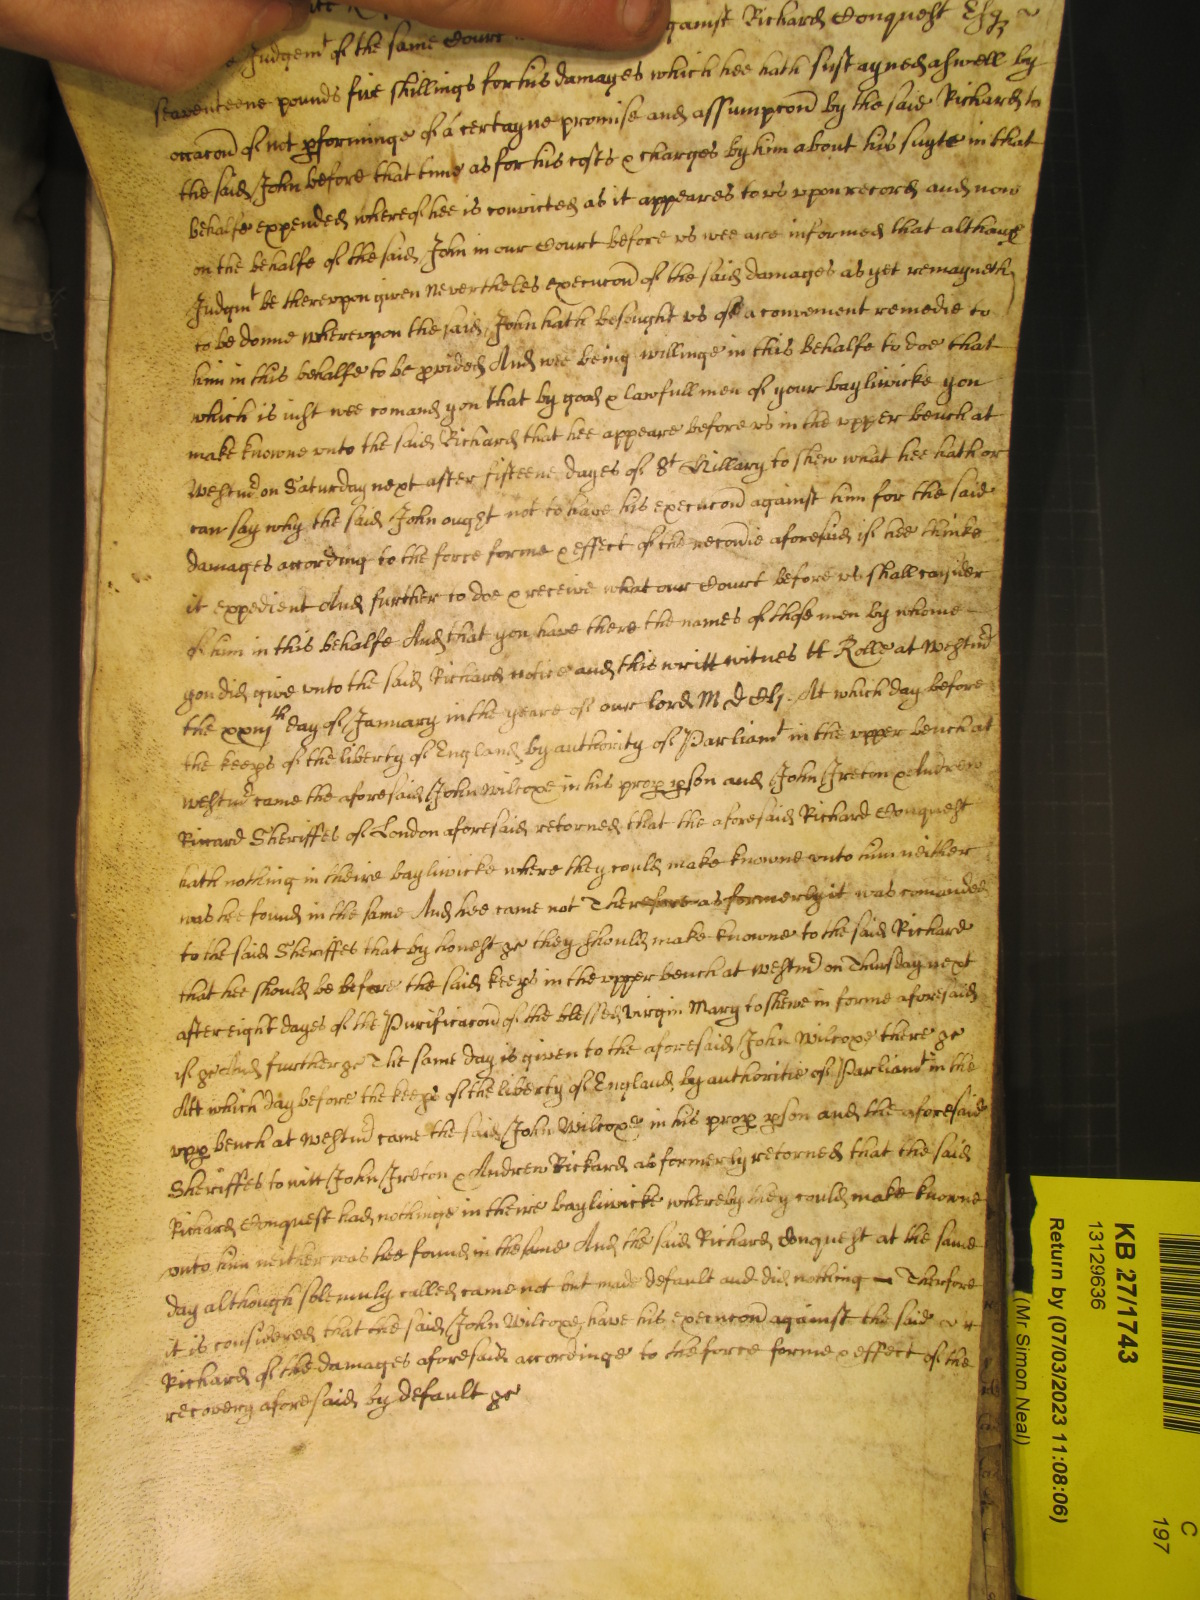 Judgemt of the same Court gainst Richard Conquest Esqr
seaventeene pounds five shillings for his damages which hee hath sustayned aswell by
occacon of not pforminge of a certayne promise and assumpcon by the said Richard to
the said John before that time as for his costs & charges by him about his suyte in that
behalfe expended whereof hee is convicted as it appeares to us upon record and now
on the behalfe of the said John in our Court before us wee are informed that althaugh
Judgmt be thereupon given Nevertheles execucon of the said damages as yet remayneth
to be donne whereupon the said John hath besought us of a convenient remedie to
him in this behalfe to be pvided And wee being willinge in this behalfe to doe that
which is iust wee comand you that by good & lawfull men of your bayliwicke you
make knowne unto the said Richard that hee appeare before us in the upper bench at
Westmr on Saturday next after fifteene dayes of St Hillary to shew what hee hath or
can say why the said John ought not to have his execucon against him for the said
damages according to the force forme & effect of the recovrie aforesaid if hee thinke
it expedient And further to doe & receive what our Court before us shall consider
of him in this behalfe And that you have there the names of those men by whome
you did give unto the said Richard notice and this writt witnes H Rolle at Westmr
the xxiijth day of January in the yeare of our lord M D Clj. At which day before
the keeps of the liberty of England by authority of Parliamt in the upper bench at
Westmr came the aforesaid John Wilcoxe in his prop pson and John Ireton & Andrew
Riccard Sheriffes of London aforesaid retorned that the aforesaid Richard Conquest
hath nothing in theire bayliwicke where they could make knowne unto him neither
was hee found in the same And hee came not Therefore as formerly it was comanded
to the said Sheriffes that by honest &c they should make knowne to the said Richard
that hee should be before the said keeps in the upper bench at Westmr on Thursday next
after eight dayes of the Purificacon of the blessed virgin Mary to shewe in forme aforesaid
if &c And further &c The same day is given to the aforesaid John Wilcoxe there &c
Att which day before the keeps of the liberty of England by authoritie of Parliamt in the
upp bench at Westmr came the said John Wilcoxe in his prop pson and the aforesaid
Sheriffes to witt John Ireton & Andrew Rickard as formerly retorned that the said
Richard Conquest had nothinge in theire bayliwicke whereby they could make knowne
unto him neither was hee found in the same And the said Richard Conquest at the same
day although solemnly called came not but made default and did nothing Therfore
it is considered that the said John Wilcoxe have his execucon against the said
Richard of the damages aforesaid accordinge to the force forme & effect of the
recovery aforesaid by default &c
KB 27/1743
13129636
Return by (07/03/2023 11:08:06)
(Mr Simon Neal)
C
197